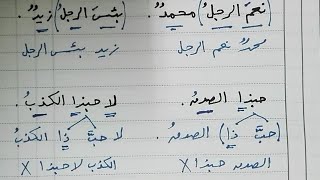 (نعمَ الرجلُ) محمدٌ. (بئسَ الرجلُ) زيدٌ.
محمدٌ نعم الرجل زيد بئس الرجل
حبذا الصدقُ. لا حبذا الكذبُ.
(حبَّ ذا) الصدقُ لا حبَّ ذا الكذبُ
الصدق حبذا X الكذب لا حبذا X